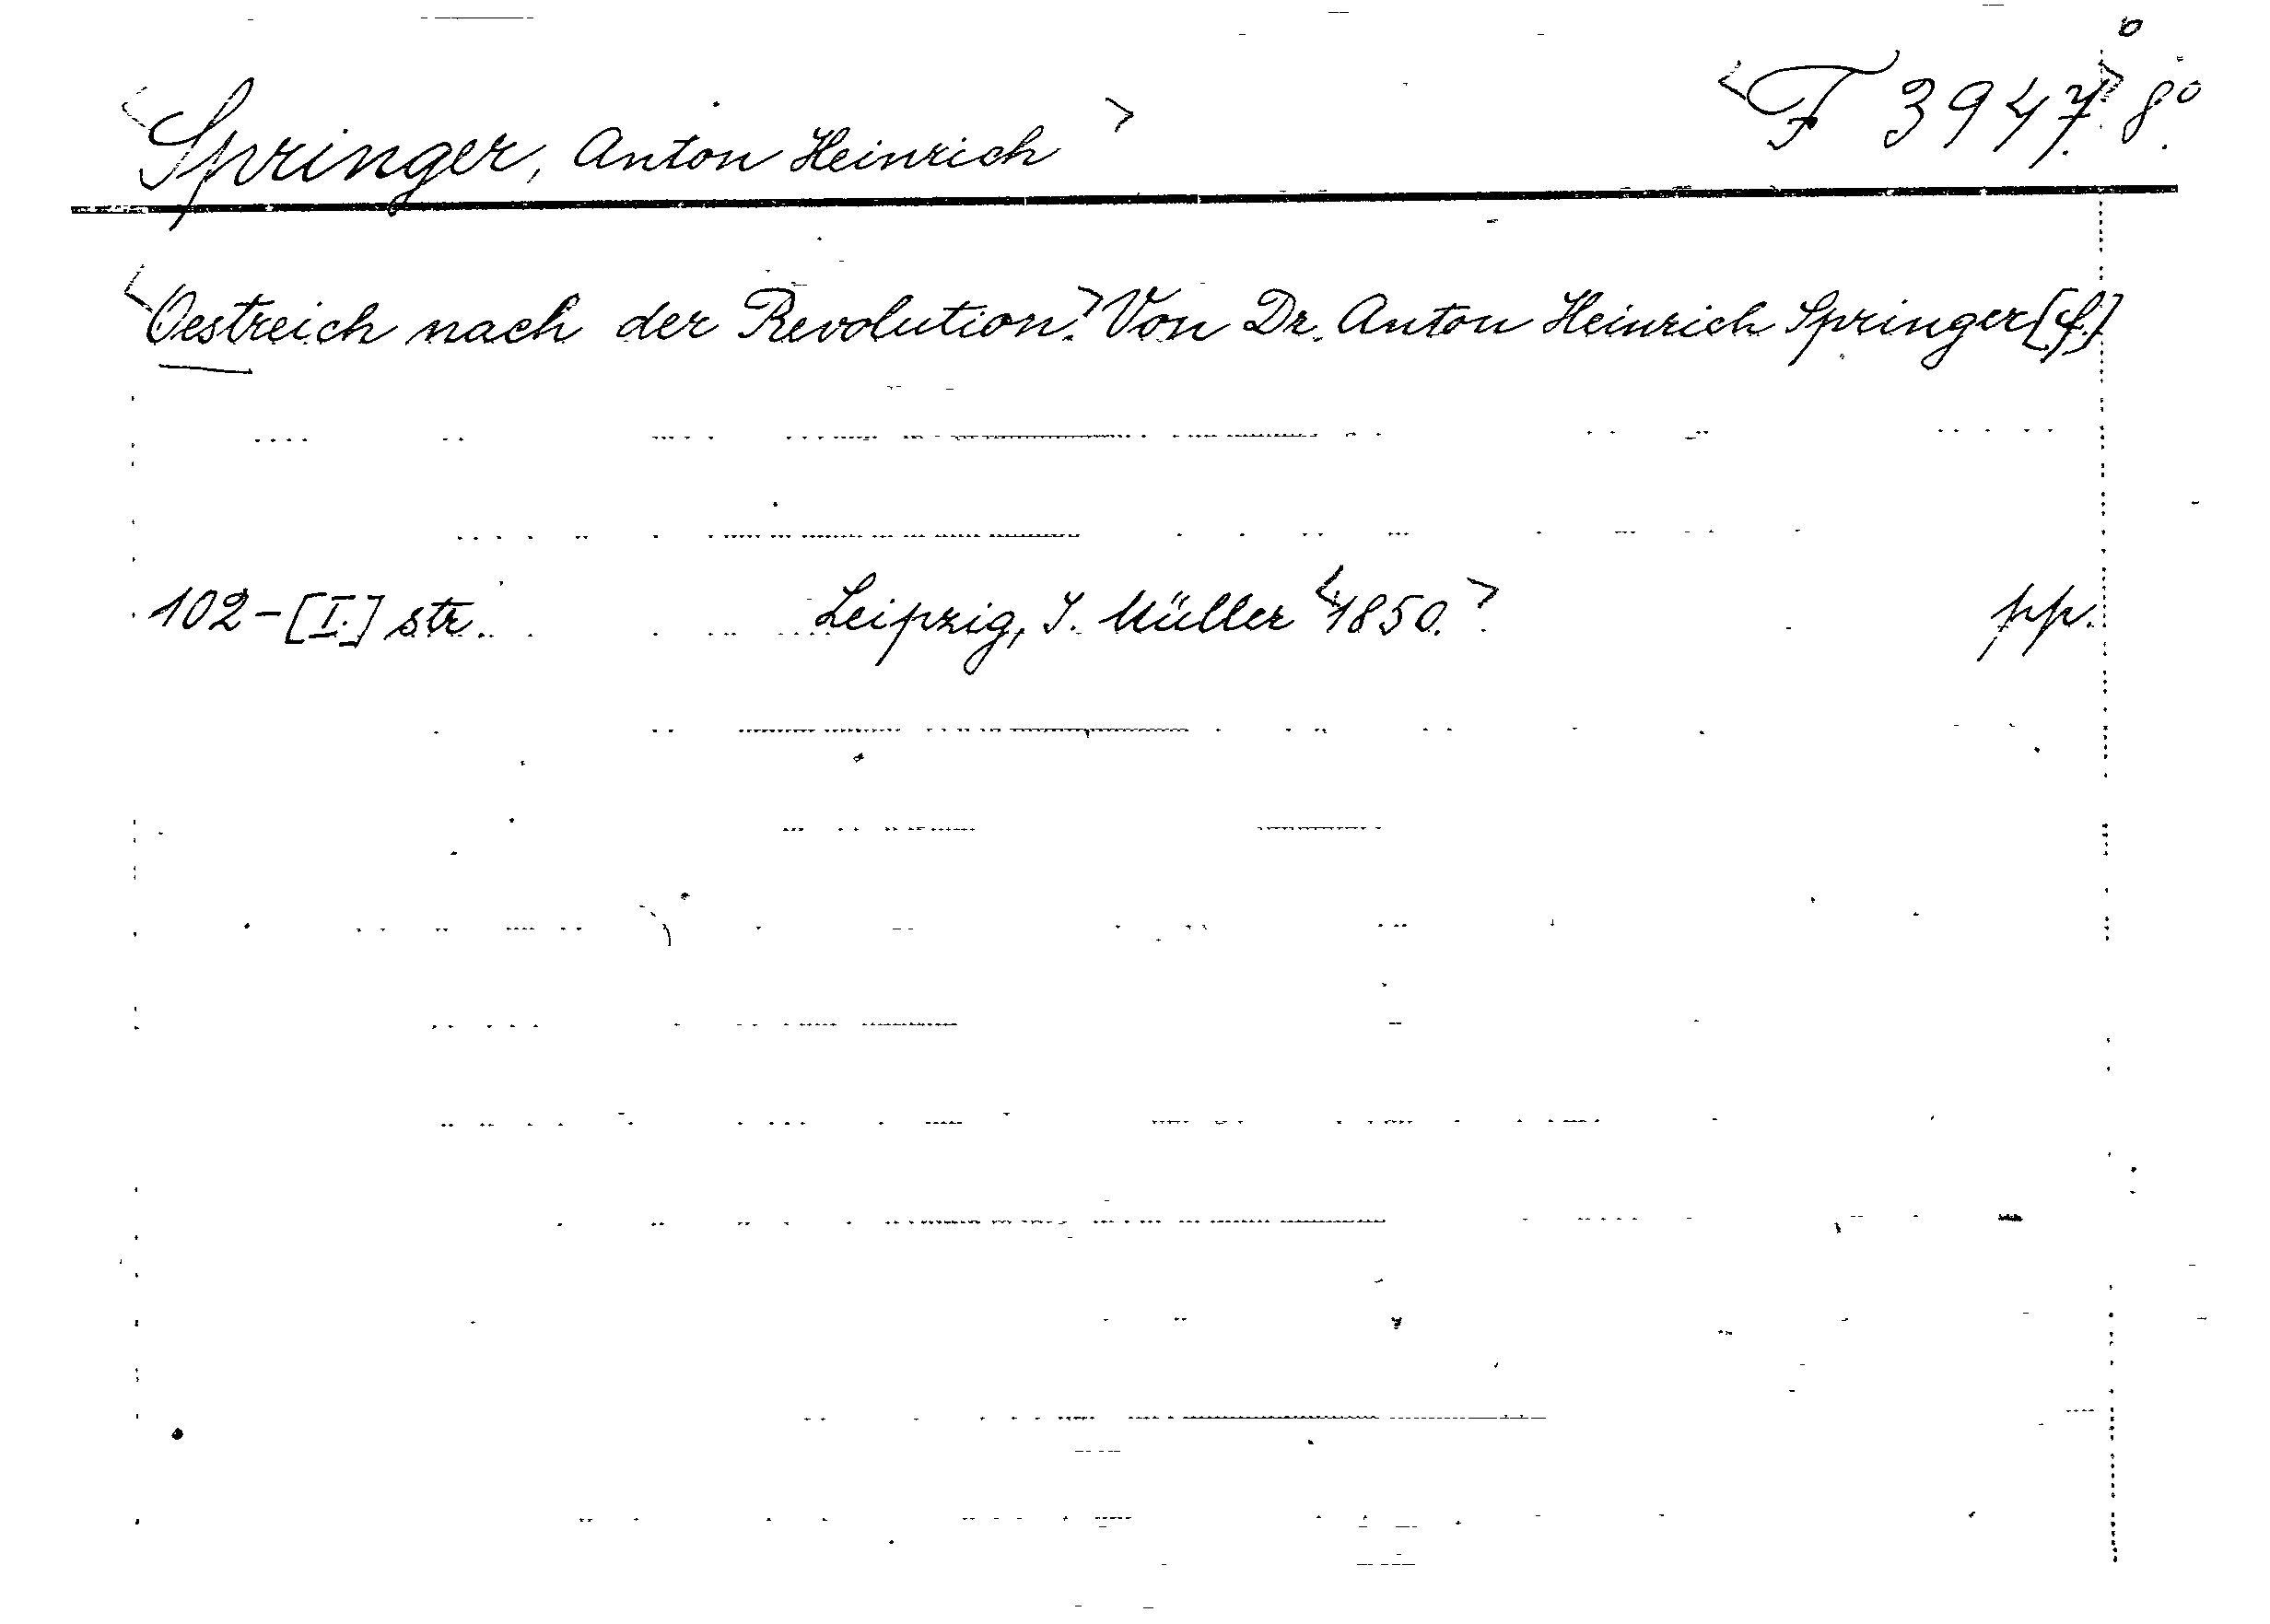 <Springer, Anton Heinrich> <F 3947.> 8º.
<Oestreich nach der Revolution.> Von Dr. Anton Heinrich Springer
102-[I.] str. Leipzig, I. Müller <1850.> pp.